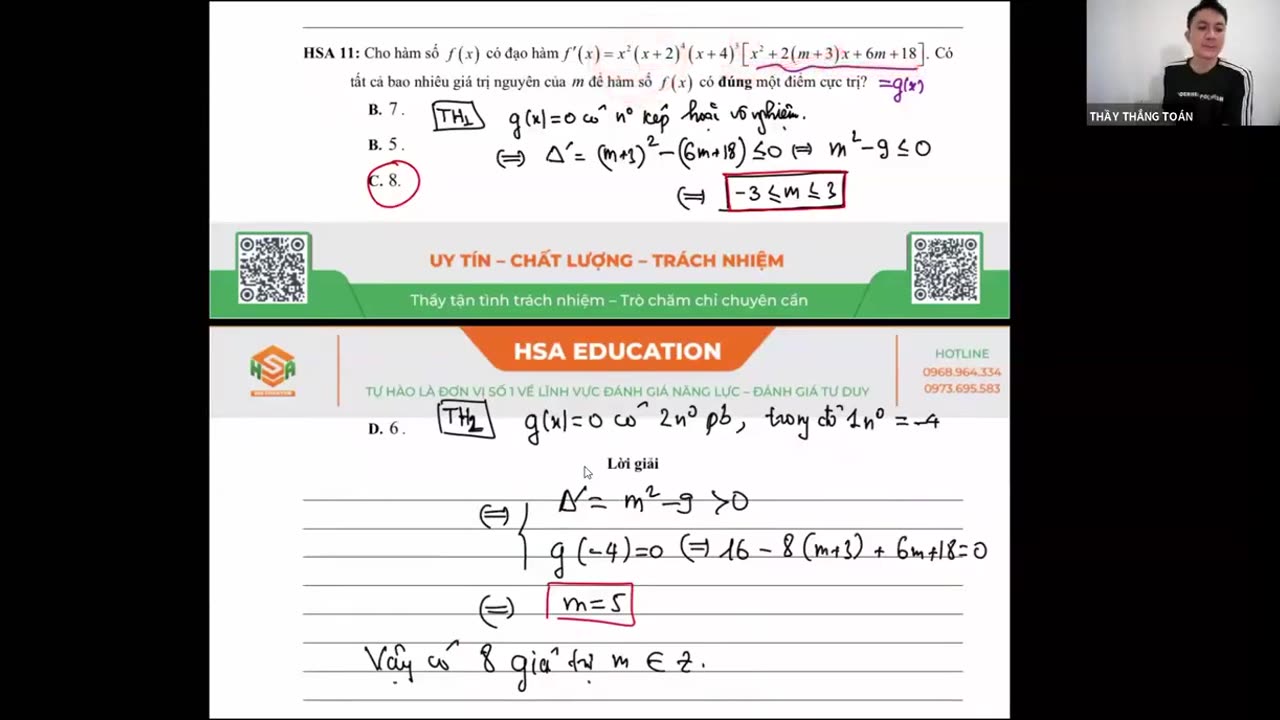 HSA 11: Cho hàm số f(x) có đạo hàm f'(x) = x²(x+2)⁴(x+4)³[x²+2(m+3)x+6m+18]. Có
tất cả bao nhiêu giá trị nguyên của m để hàm số f(x) có đúng một điểm cực trị? =g(x)
B. 7.
TH₁ g(x)=0 có n⁰ kép hoặc vô nghiệm.
B. 5.
⇔ Δ' = (m+3)² − (6m+18) ≤ 0 ⇔ m² − 9 ≤ 0
C. 8.
⇔ -3 ≤ m ≤ 3
UY TÍN – CHẤT LƯỢNG – TRÁCH NHIỆM
Thầy tận tình trách nhiệm – Trò chăm chỉ chuyên cần
HSA EDUCATION
HSA
HOTLINE
0968.964.334
0973.695.583
TỰ HÀO LÀ ĐƠN VỊ SỐ 1 VỀ LĨNH VỰC ĐÁNH GIÁ NĂNG LỰC – ĐÁNH GIÁ TƯ DUY
D. 6.
TH₂ g(x)=0 có 2n⁰ pb, trong đó 1n⁰ = -4
Lời giải
⇔ Δ' = m² − 9 > 0
g(-4)=0 ⇔ 16 − 8(m+3) + 6m+18=0
⇔ m=5
Vậy có 8 giá trị m ∈ Z.
THẦY THẮNG TOÁN